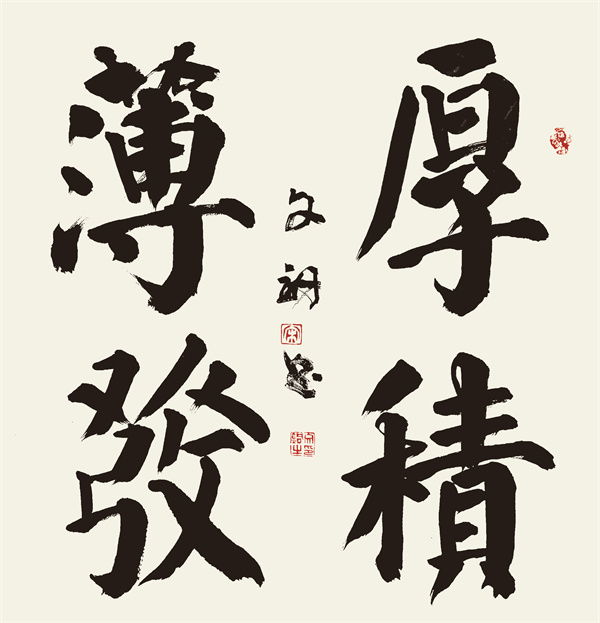 厚積
薄發
文